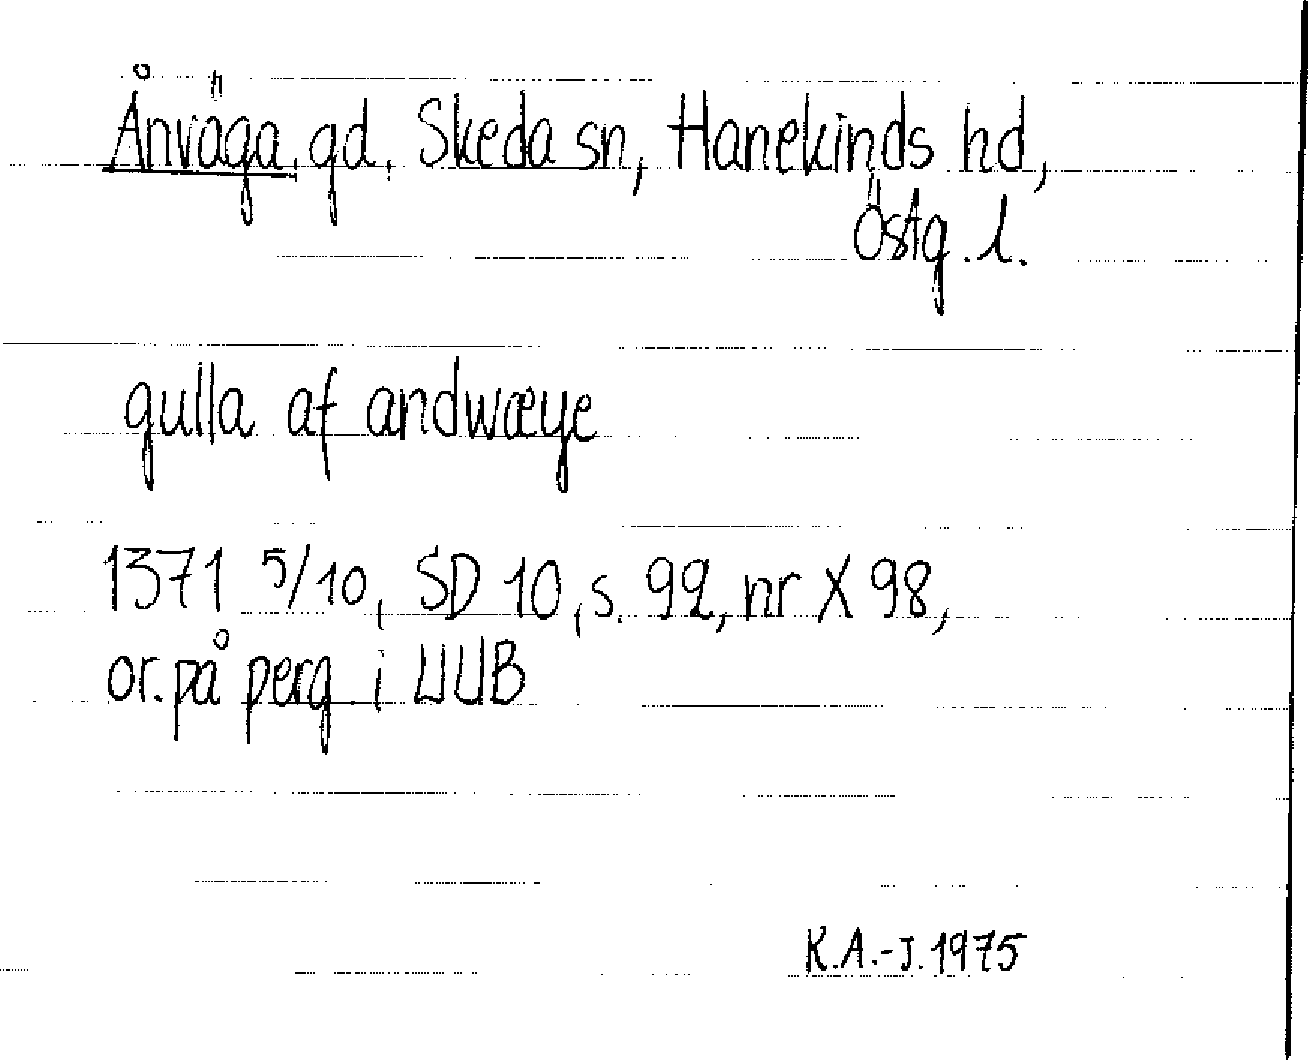 Ånväga, gd, Skeda sn, Hanekinds hd,
Östg. l.
gulla af andwæye
1371 5/10, SD 10, s. 92, nr X 98,
or. på perg. i UUB
K.A.-J. 1975